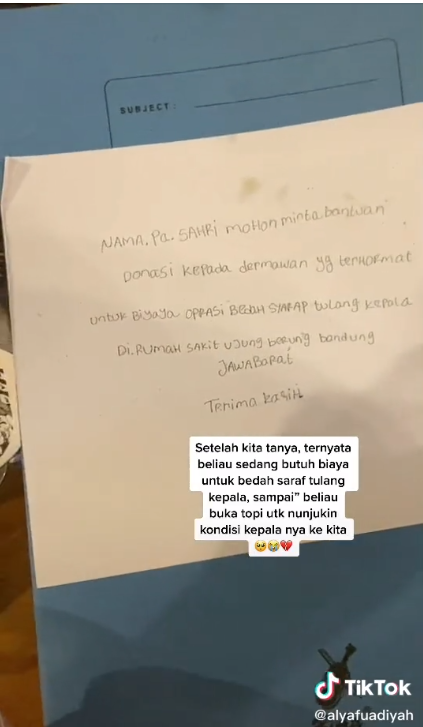 SUBJECT:
NAMA. Pa. SAHRi moHon minta bantuan
Donasi Kepada dermawan yg terHormat
untuk Biyaya OPRASi BEDAH SYARAP tulang kepala
Di. RUMAH SAKit UJUNG borung bandung
JAWABARAt
Terima kasiH
Setelah kita tanya, ternyata
beliau sedang butuh biaya
untuk bedah saraf tulang
kepala, sampai" beliau
buka topi utk nunjukin
kondisi kepala nya ke kita
🥺😭💔
TikTok
@alyafuadiyah